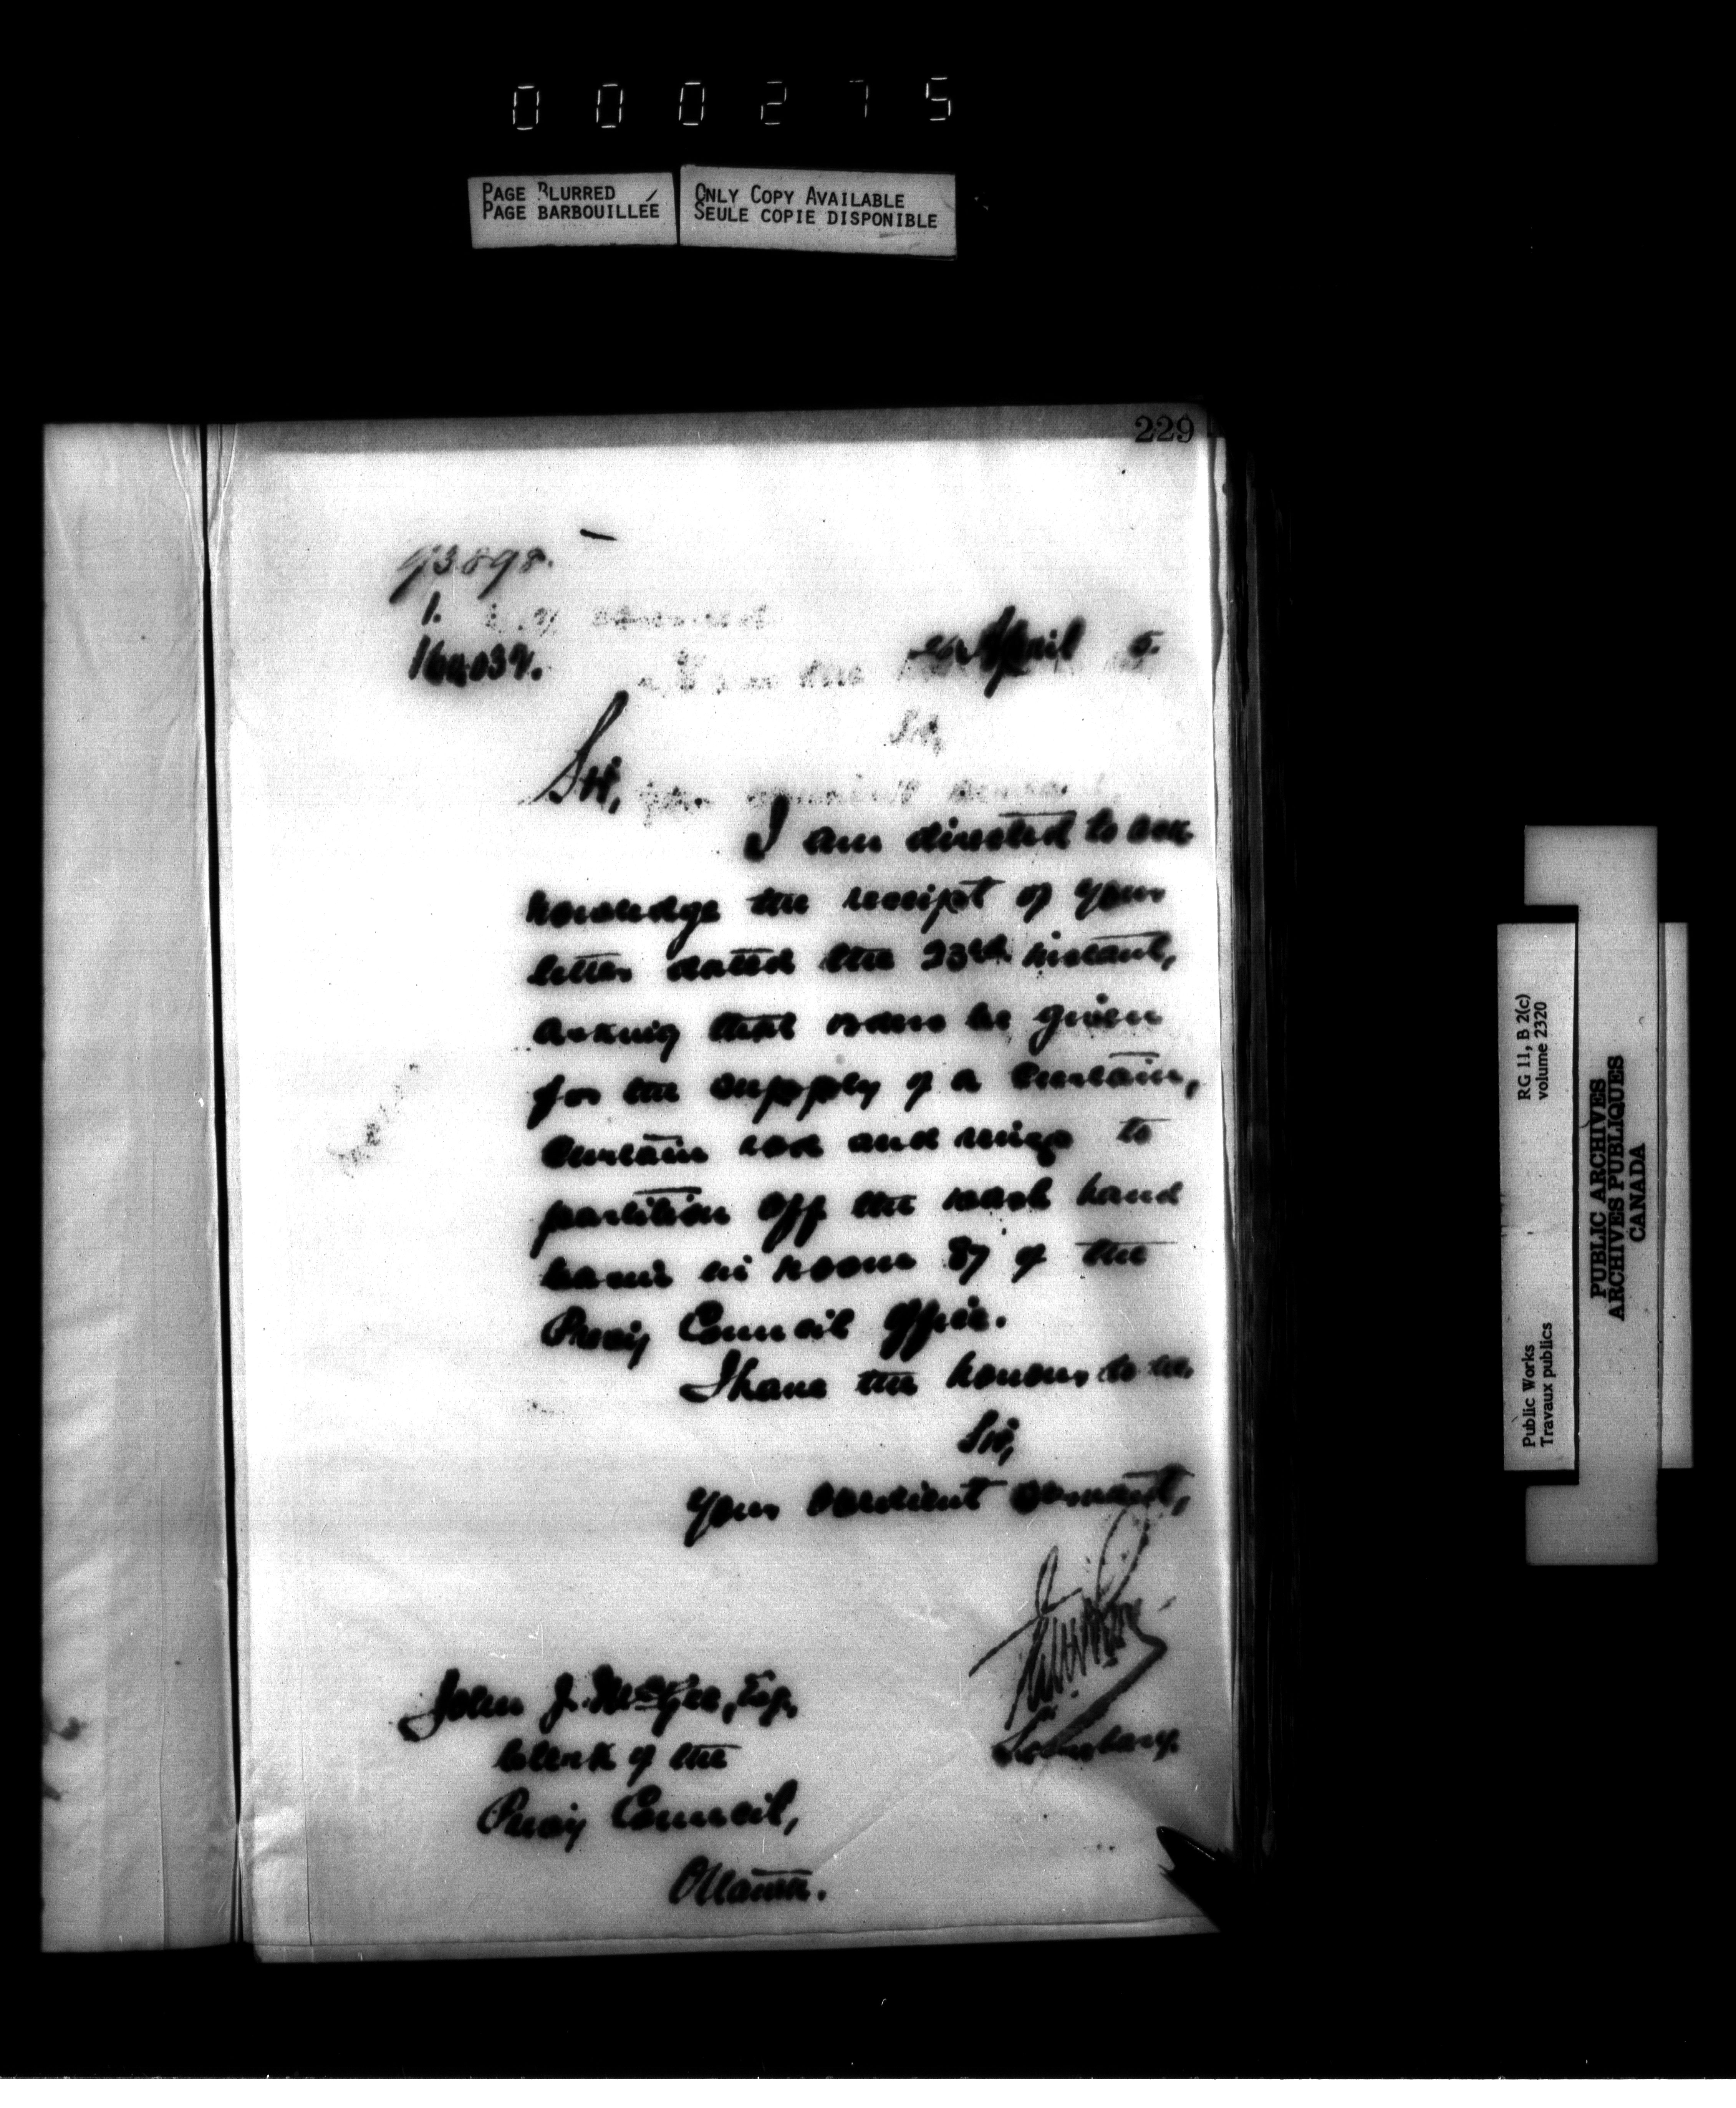 0 0 0 2 7 5
PAGE BLURRED
PAGE BARBOUILLÉE
ONLY COPY AVAILABLE
SEULE COPIE DISPONIBLE
229
93898.
1.
April 5.
Sir,
I am directed to ack
knowledge the receipt of your
letter dated the 23rd instant,
asking that orders be given
for the supply of a curtain,
curtain rod and rings to
partition off the wash hand
basin in Room 87 of the
Privy Council Office.
I have the honour to be,
Sir,
Your obedient servant,
Secretary.
John J. McGee, Esq.
Clerk of the
Privy Council,
Ottawa.
Public Works
Travaux publics
RG 11, B 2(c)
volume 2320
PUBLIC ARCHIVES
ARCHIVES PUBLIQUES
CANADA